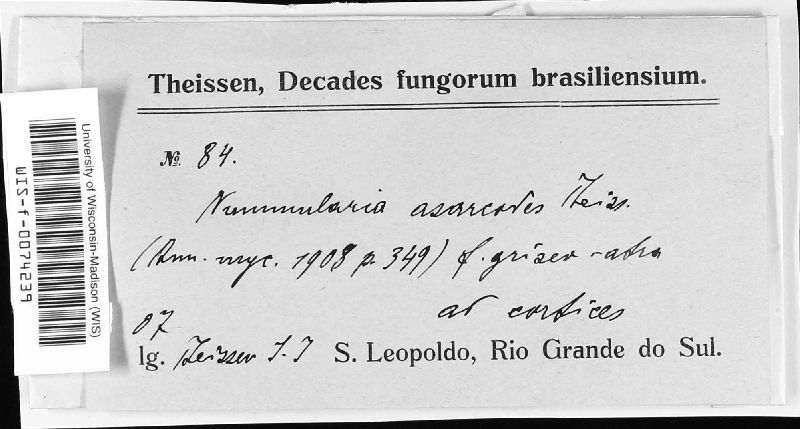 Theissen, Decades fungorum brasiliensium.
№ 84.
Nummularia asarcodes Theiss.
(Ann. myc. 1908 p. 349) f. griseo-atra
ad cortices
07
lg. Theissen S. J S. Leopoldo, Rio Grande do Sul.
University of Wisconsin-Madison (WIS)
WIS-f-0074239